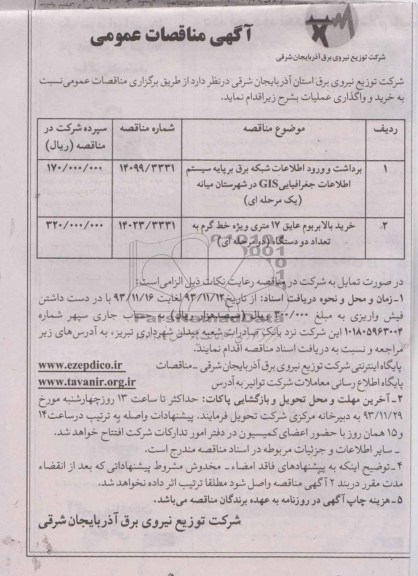 آگهی مناقصات عمومی
شرکت توزیع نیروی برق آذربایجان شرقی
شرکت توزیع نیروی برق استان آذربایجان شرقی درنظر دارد از طریق برگزاری مناقصات عمومی نسبت
به خرید و واگذاری عملیات بشرح زیر اقدام نماید.
ردیف موضوع مناقصه شماره مناقصه سپرده شرکت در مناقصه (ریال)
۱ برداشت و ورود اطلاعات شبکه برق برپایه سیستم ۱۴۰۹۹/۳۳۳۱ ۱۷۰/۰۰۰/۰۰۰
اطلاعات جغرافیایی GIS در شهرستان میانه
(یک مرحله ای)
۲ خرید بالابر بوم عایق ۱۷ متری ویژه خط گرم به ۱۴۰۲۳/۳۳۳۱ ۳۲۰/۰۰۰/۰۰۰
تعداد دو دستگاه (دو مرحله ای)
در صورت تمایل به شرکت در مناقصه رعایت نکات ذیل الزامی است:
۱- زمان و محل و نحوه دریافت اسناد: از تاریخ ۹۳/۱۱/۱۲ لغایت ۹۳/۱۱/۱۶ با در دست داشتن
فیش واریزی به مبلغ ۳۰۰/۰۰۰ ریال (سیصد هزار ریال) به حساب جاری سپهر شماره
۰۱۰۱۸۰۵۹۶۳۰۰۴ این شرکت نزد بانک صادرات شعبه میدان شهرداری تبریز، به آدرس‌های زیر
مراجعه و نسبت به دریافت اسناد مناقصه اقدام نمایند.
پایگاه اینترنتی شرکت توزیع نیروی برق آذربایجان شرقی - مناقصات www.ezepdico.ir
پایگاه اطلاع رسانی معاملات شرکت توانیر به آدرس www.tavanir.org.ir
۲- آخرین مهلت و محل تحویل و بازگشایی پاکات: حداکثر تا ساعت ۱۳ روز چهارشنبه مورخ
۹۳/۱۱/۲۹ به دبیرخانه مرکزی شرکت تحویل فرمایند. پیشنهادات واصله به ترتیب در ساعت ۱۴
و ۱۵ همان روز با حضور اعضای کمیسیون در دفتر امور تدارکات شرکت افتتاح خواهد شد.
- سایر اطلاعات و جزئیات مربوطه در اسناد مناقصه مندرج است.
۴- توضیح اینکه به پیشنهادهای فاقد امضاء - مخدوش مشروط پیشنهاداتی که بعد از انقضاء
مدت مقرر در بند ۲ آگهی مناقصه واصل شود مطلقا ترتیب اثر داده نخواهد شد.
۵- هزینه چاپ آگهی در روزنامه به عهده برندگان مناقصه می‌باشد.
شرکت توزیع نیروی برق آذربایجان شرقی